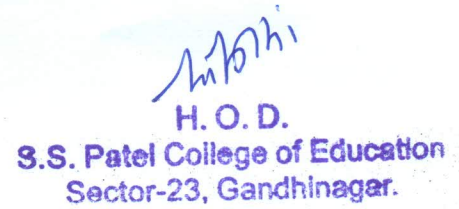 H. O. D.
S.S. Patel College of Education
Sector-23, Gandhinagar.